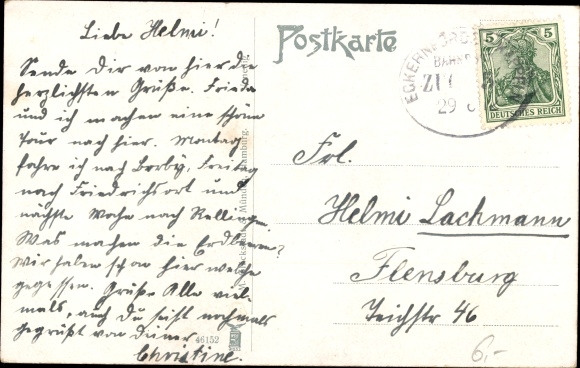 Liebe Helmi!
Sende Dir von hier die
herzlichsten Grüße. Frieda
und ich machen eine schöne
Tour nach hier. Montag
fahre ich nach Borby, Freitag
nach Friedrichsort und
nächste Woche nach Rellingen
Was machen die Erdbeeren?
Wir haben schon hier welche
gegessen. Grüße Alle viel-
mals, auch Du seist nochmals
gegrüßt von Deiner
Christine.
46152
Postkarte
ECKERNFÖRDE
BAHNP
ZUG
29
5 5
DEUTSCHES REICH
Frl.
Helmi Lachmann
Flensburg
Teichstr 46
6,-